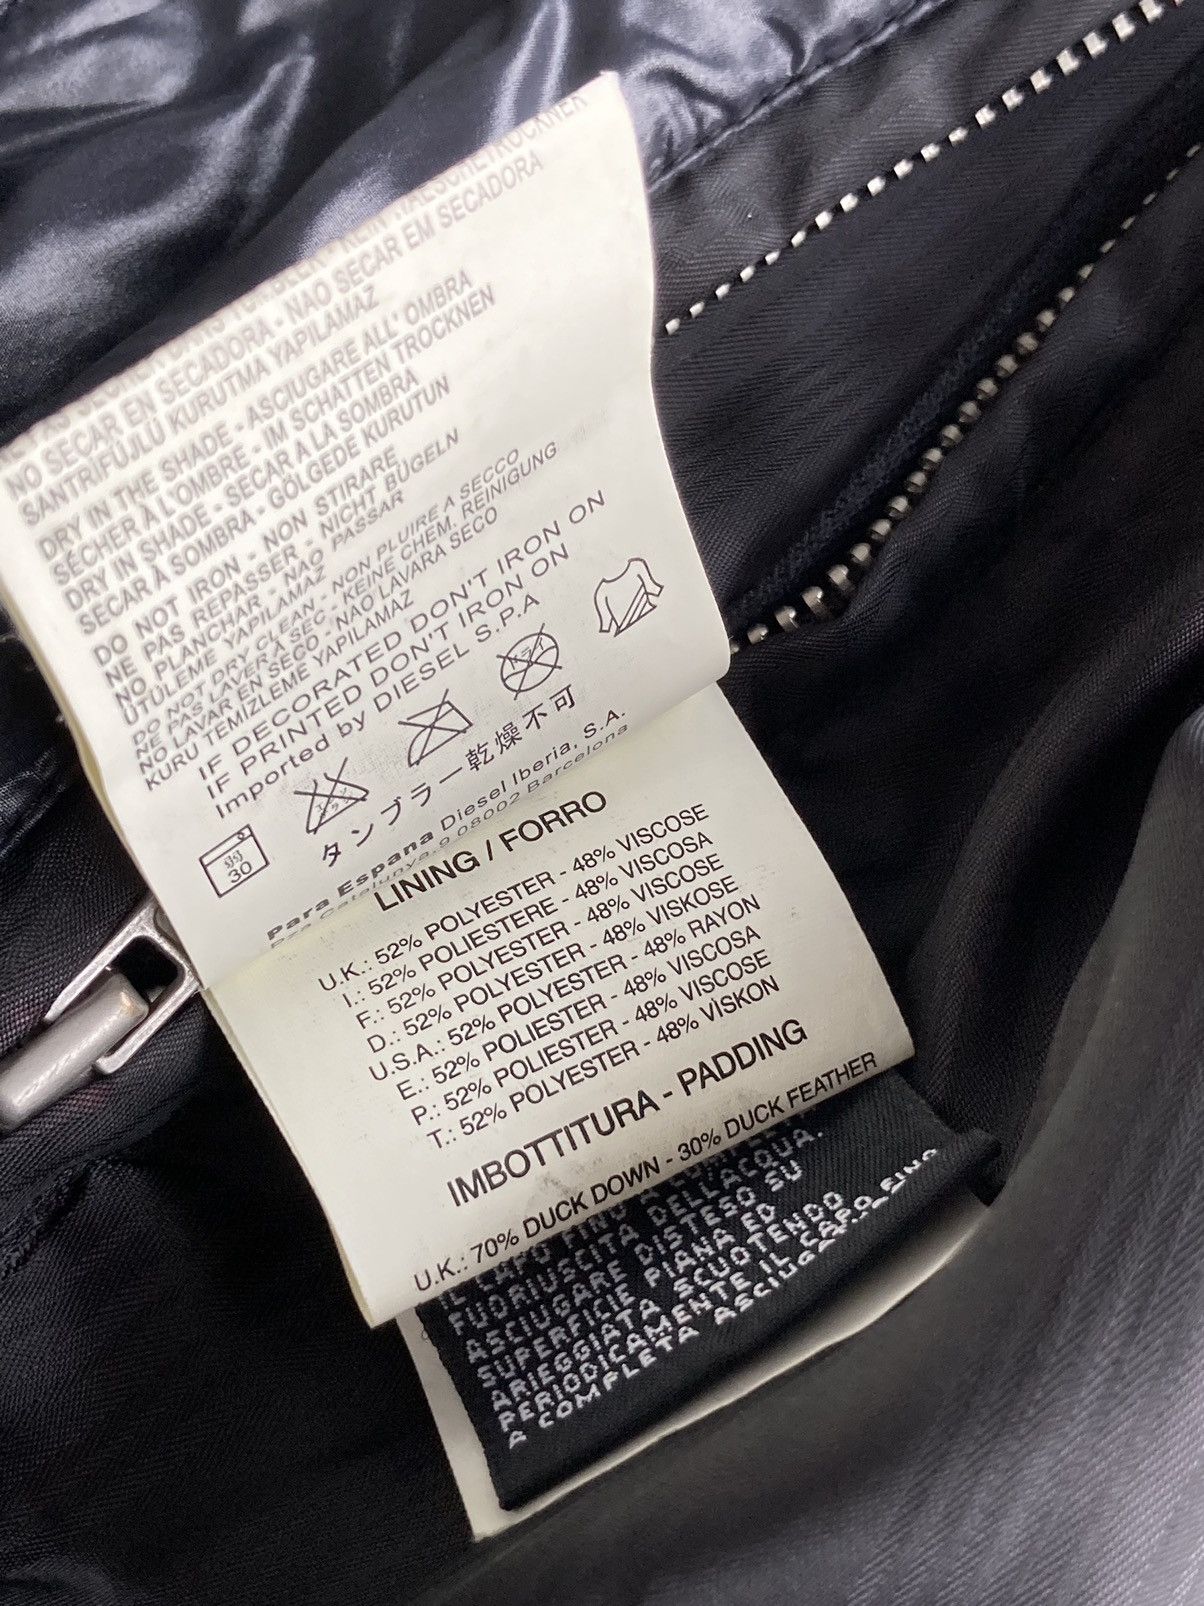 HAESCHETROCKNER
NO SECAR EN SECADORA - NAO SECAR EM SECADORA
SANTRIFÜJLÜ KURUTMA YAPILAMAZ
DRY IN THE SHADE - ASCIUGARE ALL' OMBRA
SÉCHER À L'OMBRE - IM SCHATTEN TROCKNEN
DRY IN SHADE - SECAR A LA SOMBRA
SECAR À SOMBRA - GÖLGEDE KURUTUN
DO NOT IRON - NON STIRARE
NE PAS REPASSER - NICHT BÜGELN
NO PLANCHAR - NAO PASSAR
ÜTÜLEME YAPILAMAZ
DO NOT DRY CLEAN - NON PLUIRE A SECCO
NE PAS LAVER À SEC - KEINE CHEM. REINIGUNG
NO LAVAR EN SECO - NAO LAVARA SECO
KURU TEMIZLEME YAPILAMAZ
IF DECORATED DON'T IRON ON
IF PRINTED DON'T IRON ON
Imported by DIESEL S.P.A
弱
30
ドライ
タンブラー乾燥不可
Para Espana Diesel Iberia, S.A.
Catalunya, 9 08002 Barcelona
LINING / FORRO
U.K.: 52% POLYESTER - 48% VISCOSE
I.: 52% POLIESTERE - 48% VISCOSA
F.: 52% POLYESTER - 48% VISCOSE
D.: 52% POLYESTER - 48% VISKOSE
U.S.A.: 52% POLYESTER - 48% RAYON
E.: 52% POLIESTER - 48% VISCOSA
P.: 52% POLIESTER - 48% VISCOSE
T.: 52% POLYESTER - 48% VİSKON
IMBOTTITURA - PADDING
U.K.: 70% DUCK DOWN - 30% DUCK FEATHER
IL CAPO FINO
FUORIUSCITA DELL'ACQUA.
ASCIUGARE DISTESO SU
SUPERFICIE PIANA ED
ARIEGGIATA SCUOTENDO
PERIODICAMENTE IL CAPO FINO
A COMPLETA